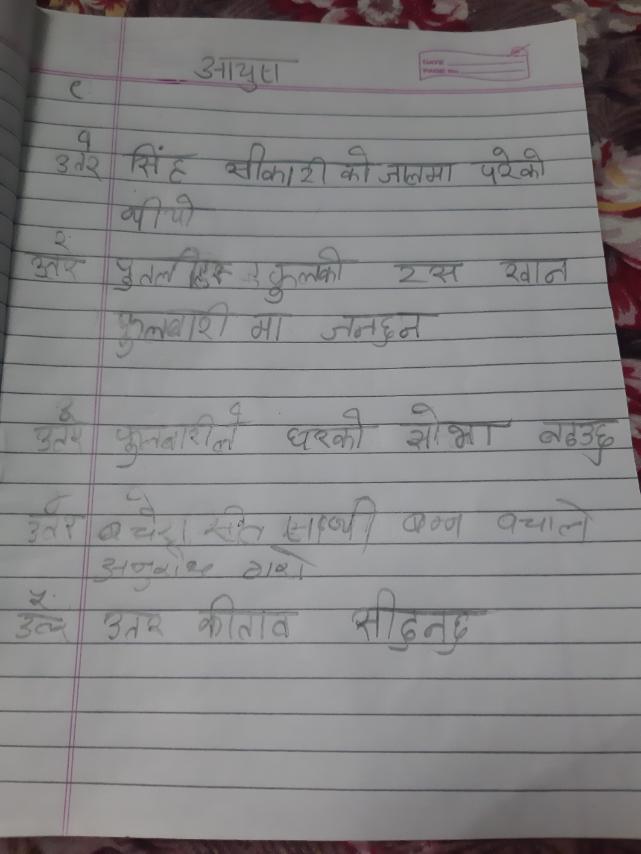 आयुश
DATE
PAGE No.
१
१
उतर सिंह सीकारी को जालमा परेको
थीयो
२
उतर पुतली हरू फुलको रस खान
फुलबारी मा जनछन
३
उतर फुलबारीले घरको सोभा बढउछ
४
उतर बचेरा सीत साथी बन्न बचाले
अनुरोध गर्यो
५
उतर उतर कीताव सीदुनछ